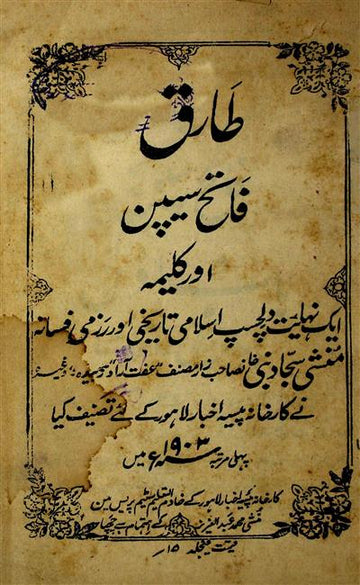 طارق
فاتح سپین
اور کلیمہ
ایک نہایت دلچسپ اسلامی تاریخی اور رزمی فسانہ
منشی سجاد نبی خانصاحب نے مصنف عفت آرا و حمیدہ وغیرہ
نے کارخانہ پیسہ اخبار لاہور کے لئے تصنیف کیا
پہلی مرتبہ سنہ ۱۹۰۳ع میں
کارخانہ پیسہ اخبار لاہور کے خادم التعلیم سٹیم پریس میں
منشی محمد عبد العزیز کے اہتمام سے چھپا
قیمت مجلد ۱۵